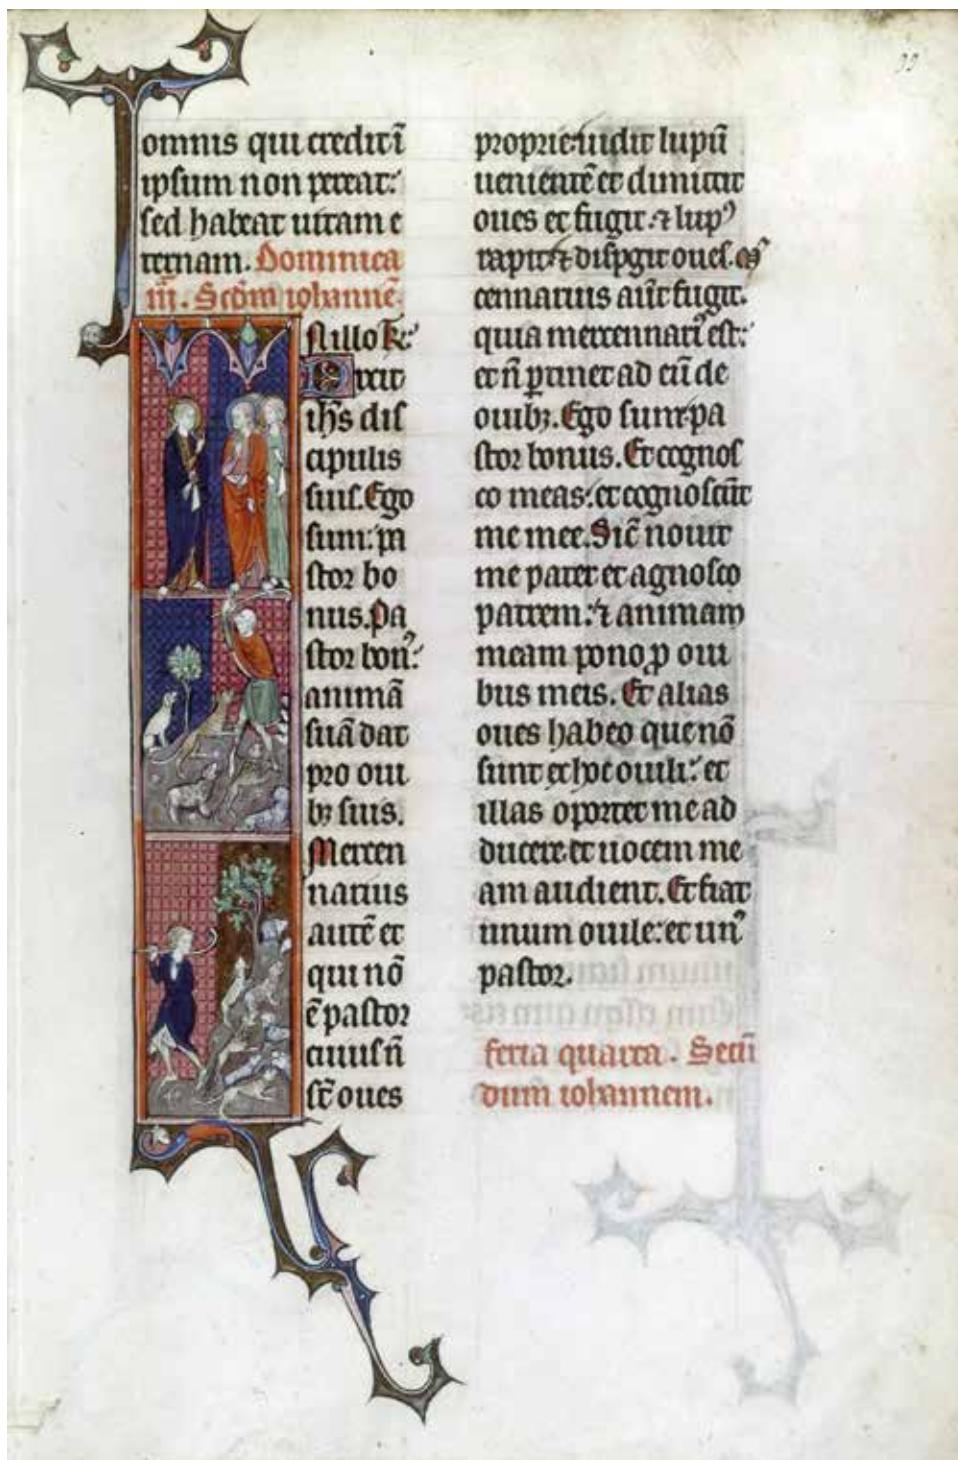 omnis qui credit ī
ipsum non pereat:
sed habeat uitam e
ternam. Dominica
iii. Scdm iohannē.
N illo t̄.
Dixit
ih̄s dis
cipulis
suis. Ego
sum: pa
stor bo
nus. Pa
stor bonꝰ:
animā
suā dat
pro oui
bꝫ suis.
Mercen
narius
autē et
qui nō
ē pastor
cuius n̄
st̄ oues
proprie: uidit lupū
uenientē et dimittit
oues et fugit. ⁊ lupꝰ
rapit ⁊ dispgit oues.
cennarius aut̄ fugit.
quia mercennariꝰ est:
et n̄ ꝑtinet ad eū de
ouibꝫ. Ego sum pa
stor bonus. Et cognos
co meas: et cognoscūt
me mee. Sic̄ nouit
me pater et agnosco
patrem: ⁊ animam
meam pono ꝓ oui
bus meis. Et alias
oues habeo que nō
sunt ex hoc ouili: et
illas oportet me ad
ducere et uocem me
am audient. Et fiat
unum ouile: et unꝰ
pastor.
feria quarta. Secū
dum iohannem.